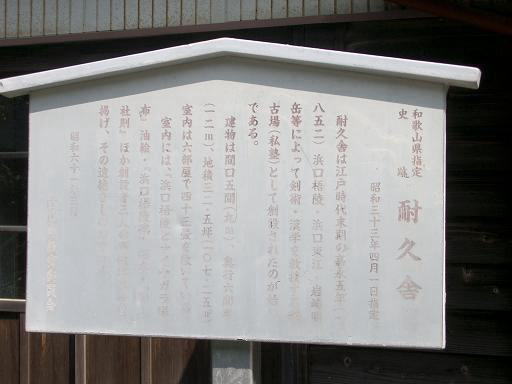 和歌山県指定
史跡 耐久舎
昭和三十三年四月一日指定
耐久舎は江戸時代末期の嘉永五年(一
八五二)浜口梧陵・浜口東江・岩崎明
岳等によって剣術・漢学を教授する稽
古場(私塾)として創設されたのが始
である。
建物は間口五間(九m)、奥行六間半
(一二m)、地積三二・五坪(一〇七・二五㎡)
室内は六部屋で四十三畳を敷いている。
室内には、「浜口梧陵と
布」油絵・「浜口梧陵
社則」ほか創設者三人の
掲げ、その遺徳を
昭和六十